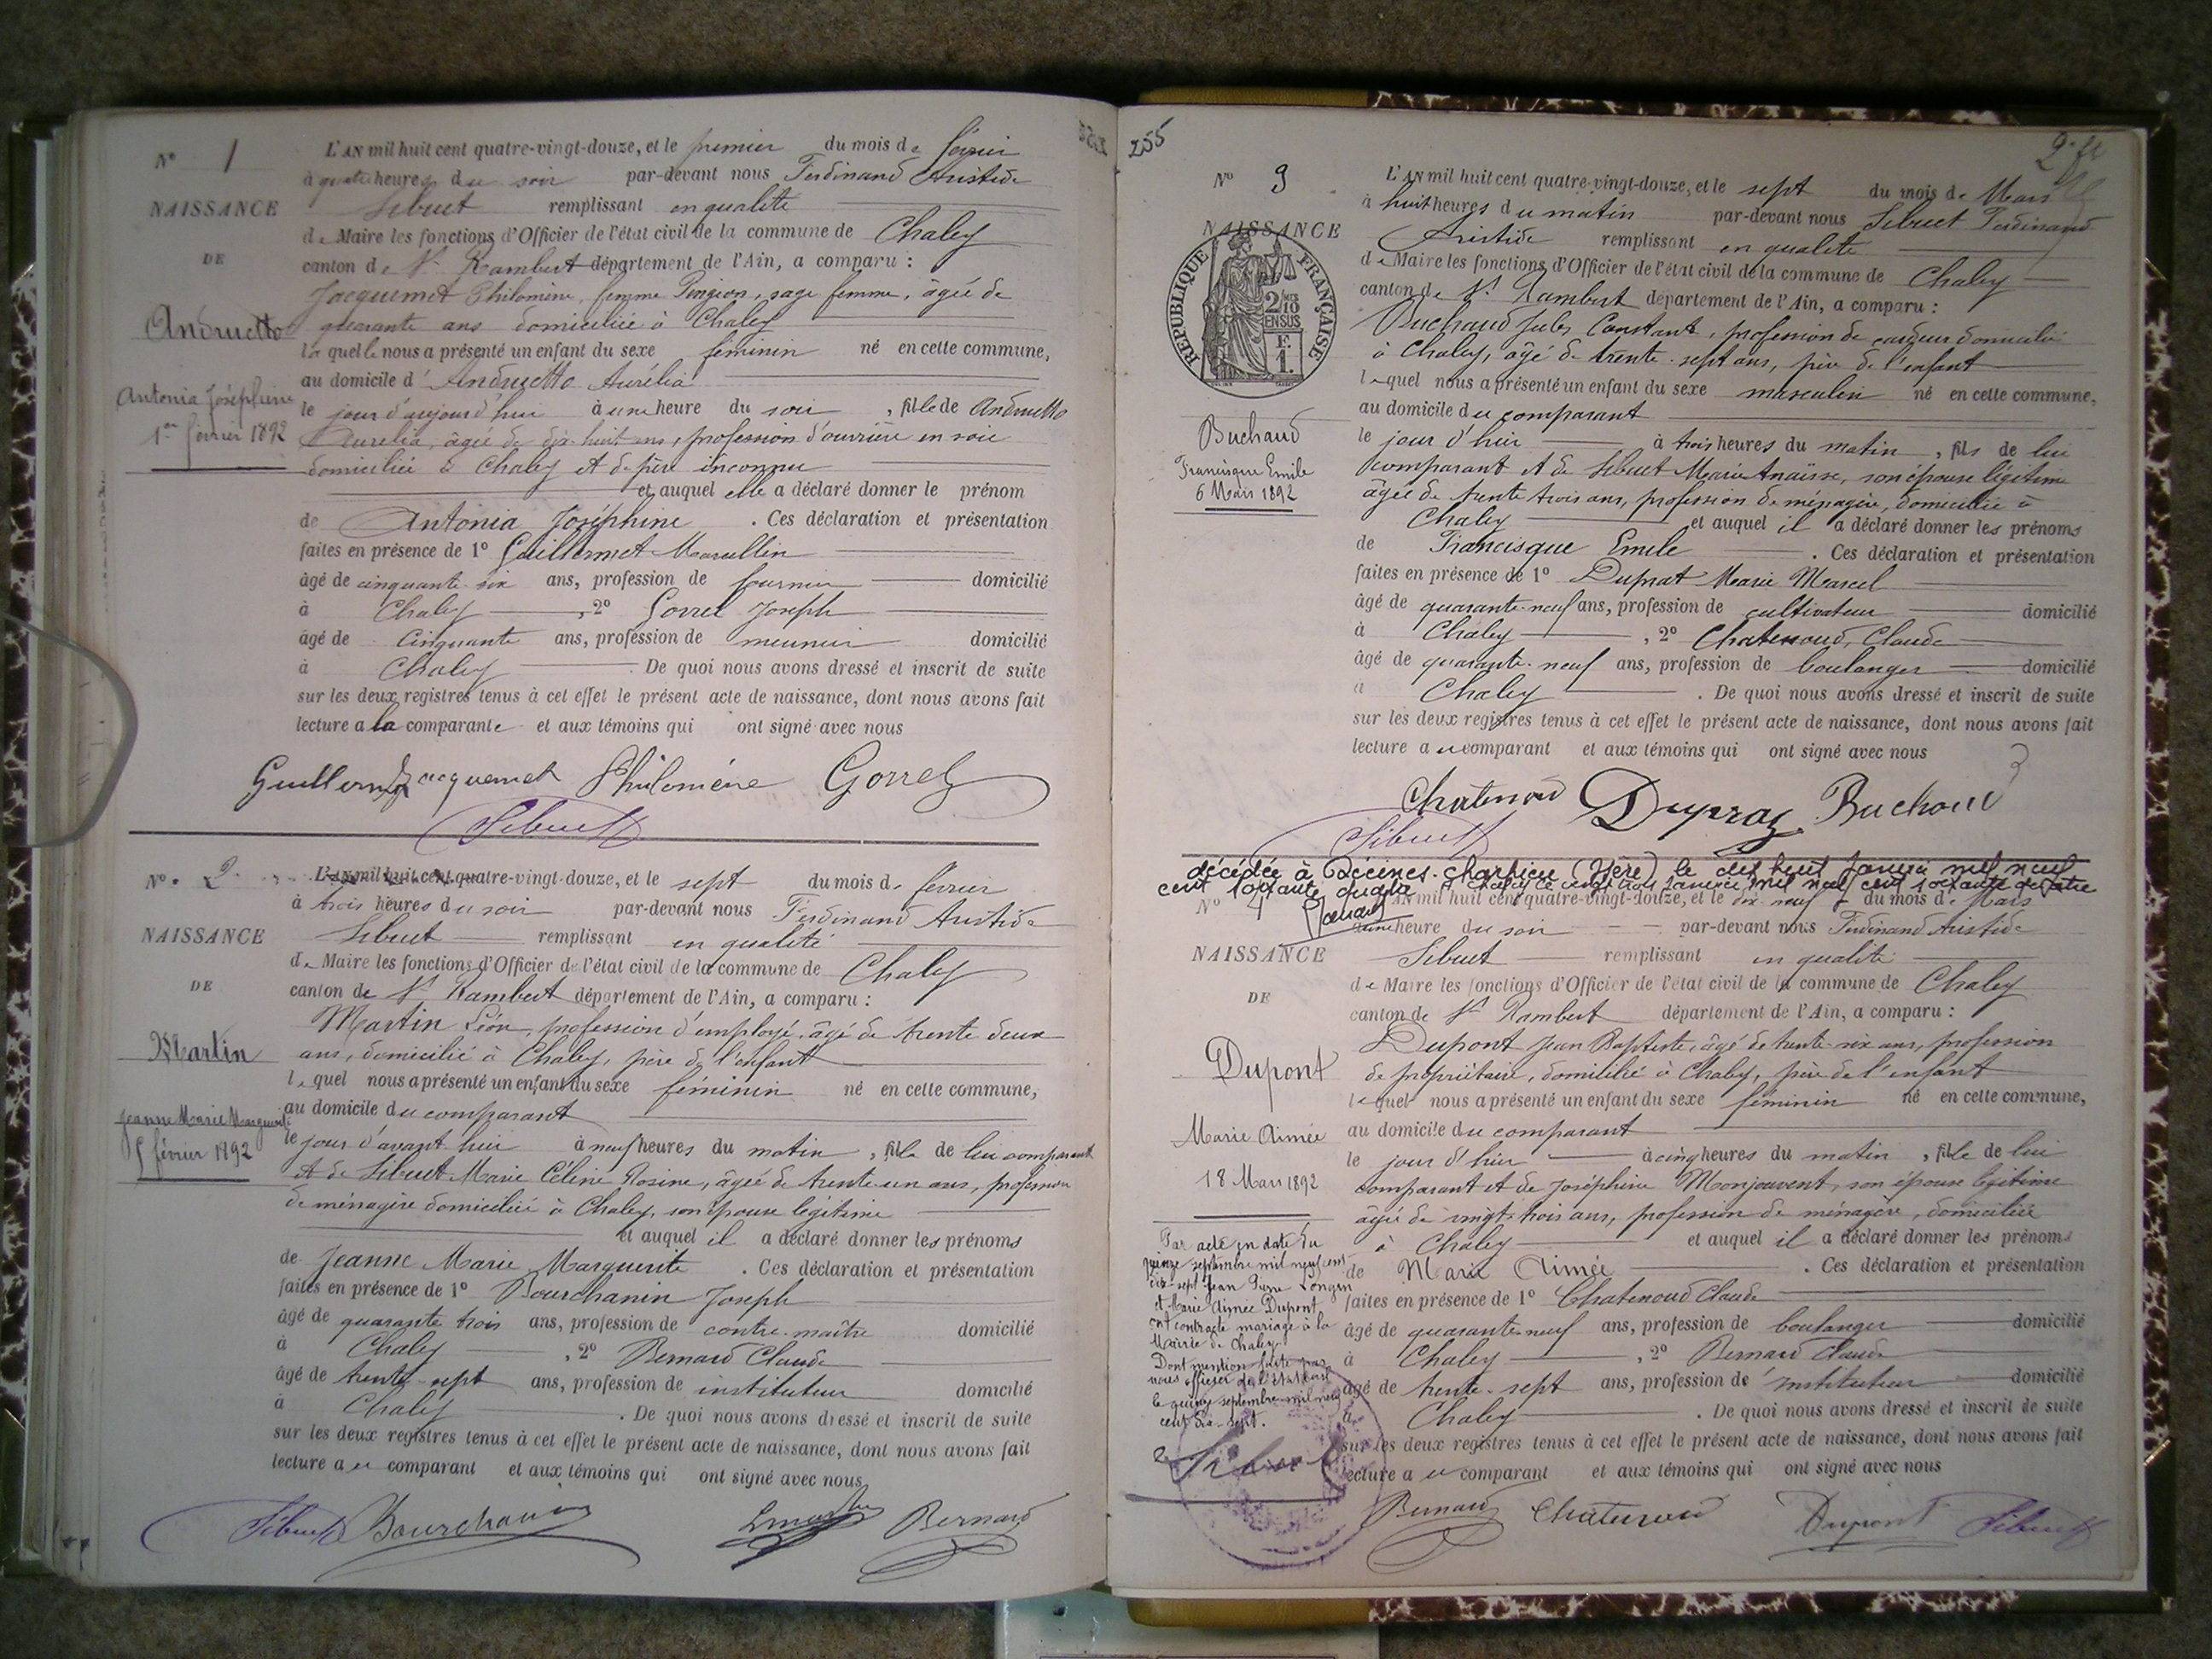 N° 1
NAISSANCE
DE
Andruetto
Antonia Joséphine
1er février 1892
L'AN mil huit cent quatre-vingt-douze, et le premier du mois de février
à quatre heures du soir par-devant nous Ferdinand Aristide
Sibuet remplissant en qualité
de Maire les fonctions d'Officier de l'état civil de la commune de Chaley
canton de St Rambert département de l'Ain, a comparu :
Jacquemet Philomène, femme Pongeon, sage femme, âgée de
quarante ans domiciliée à Chaley
laquelle nous a présenté un enfant du sexe féminin né en cette commune,
au domicile d'Andruetto Aurélia
le jour d'aujourd'hui à une heure du soir, fille de Andruetto
Aurélia, âgée de dix huit ans, profession d'ouvrière en soie
domiciliée à Chaley et de père inconnu
et auquel elle a déclaré donner le prénom
de Antonia Joséphine . Ces déclaration et présentation
faites en présence de 1° Guillermet Marcellin
âgé de cinquante six ans, profession de fournier domicilié
à Chaley , 2° Gorrel Joseph
âgé de Cinquante ans, profession de meunier domicilié
à Chaley . De quoi nous avons dressé et inscrit de suite
sur les deux registres tenus à cet effet le présent acte de naissance, dont nous avons fait
lecture à la comparante et aux témoins qui ont signé avec nous
Guillermet Jacquemet Philomène Gorrel
Sibuet
N° 2
NAISSANCE
DE
Martin
Jeanne Marie Marguerite
5 février 1892
L'AN mil huit cent quatre-vingt-douze, et le sept du mois de février
à trois heures du soir par-devant nous Ferdinand Aristide
Sibuet remplissant en qualité
de Maire les fonctions d'Officier de l'état civil de la commune de Chaley
canton de St Rambert département de l'Ain, a comparu :
Martin Léon, profession d'employé, âgé de trente deux
ans, domicilié à Chaley, père de l'enfant
lequel nous a présenté un enfant du sexe féminin né en cette commune,
au domicile du comparant
le jour d'avant hier à neuf heures du matin, fille de lui comparant
et de Sibuet Marie Céline Rosine, âgée de trente un ans, profession
de ménagère domiciliée à Chaley, son épouse légitime
et auquel il a déclaré donner les prénoms
de Jeanne Marie Marguerite . Ces déclaration et présentation
faites en présence de 1° Bourchanin Joseph
âgé de quarante trois ans, profession de contre-maître domicilié
à Chaley , 2° Bernard Claude
âgé de trente-sept ans, profession de instituteur domicilié
à Chaley . De quoi nous avons dressé et inscrit de suite
sur les deux registres tenus à cet effet le présent acte de naissance, dont nous avons fait
lecture au comparant et aux témoins qui ont signé avec nous
Sibuet Bourchanin Bernard
255
N° 3
NAISSANCE
RÉPUBLIQUE FRANÇAISE
2/10 EN SUS
F. 1.
Buchaud
Francisque Emile
6 Mars 1892
L'AN mil huit cent quatre-vingt-douze, et le sept du mois de Mars
à huit heures du matin par-devant nous Sibuet Ferdinand
Aristide remplissant en qualité
de Maire les fonctions d'Officier de l'état civil de la commune de Chaley
canton de St Rambert département de l'Ain, a comparu :
Buchaud Jules Constant, profession de cardeur domicilié
à Chaley, âgé de trente-sept ans, père de l'enfant
lequel nous a présenté un enfant du sexe masculin né en cette commune,
au domicile du comparant
le jour d'hier à trois heures du matin, fils de lui
comparant et de Sibuet Marie Anaïsse, son épouse légitime
âgée de trente trois ans, profession de ménagère, domiciliée à
Chaley et auquel il a déclaré donner les prénoms
de Francisque Emile . Ces déclaration et présentation
faites en présence de 1° Duprat Marie Marcel
âgé de quarante-neuf ans, profession de cultivateur domicilié
à Chaley , 2° Chatenoud, Claude
âgé de quarante-neuf ans, profession de boulanger domicilié
à Chaley . De quoi nous avons dressé et inscrit de suite
sur les deux registres tenus à cet effet le présent acte de naissance, dont nous avons fait
lecture au comparant et aux témoins qui ont signé avec nous
Chatenoud Dupraz Buchaud
Sibuet
décédée à Décines-Charpieu (Isère) le dix huit Janvier mil neuf
cent soixante quatre Chaley le vingt trois Janvier mil neuf cent soixante quatre
N° 4
NAISSANCE
DE
Dupont
Marie Aimée
18 Mars 1892
Par acte en date du
quinze septembre mil neuf cent
dix-sept Jean Pierre Longin
et Marie Aimée Dupont
ont contracté mariage à la
Mairie de Chaley
Dont mention faite par
nous officier de l'état civil
le quinze septembre mil neuf
cent dix-sept.
Sibuet
L'AN mil huit cent quatre-vingt-douze, et le dix-neuf du mois de Mars
à une heure du soir par-devant nous Ferdinand Aristide
Sibuet remplissant en qualité
de Maire les fonctions d'Officier de l'état civil de la commune de Chaley
canton de St Rambert département de l'Ain, a comparu :
Dupont Jean Baptiste, âgé de trente-six ans, profession
de propriétaire, domicilié à Chaley, père de l'enfant
lequel nous a présenté un enfant du sexe féminin né en cette commune,
au domicile du comparant
le jour d'hier à cinq heures du matin, fille de lui
comparant et de Joséphine Monjouvent, son épouse légitime
âgée de vingt-trois ans, profession de ménagère, domiciliée
à Chaley et auquel il a déclaré donner les prénoms
de Marie Aimée . Ces déclaration et présentation
faites en présence de 1° Chatenoud Claude
âgé de quarante-neuf ans, profession de boulanger domicilié
à Chaley , 2° Bernard Claude
âgé de trente-sept ans, profession de instituteur domicilié
à Chaley . De quoi nous avons dressé et inscrit de suite
sur les deux registres tenus à cet effet le présent acte de naissance, dont nous avons fait
lecture au comparant et aux témoins qui ont signé avec nous
Bernard Chatenoud Dupont Sibuet